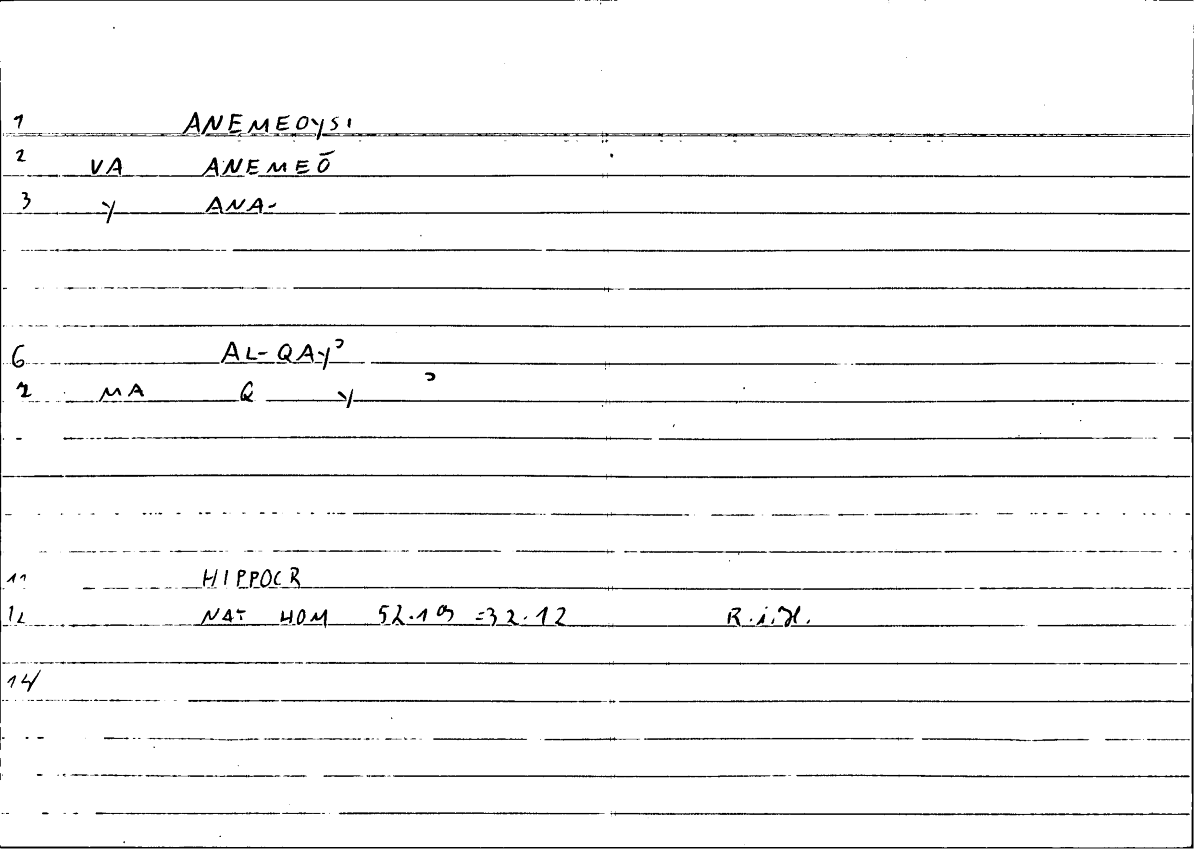 1 ANEMEOYSI
2 VA ANEMEŌ
3 Y ANA-
6 AL-QAYʾ
7 MA Q Y ʾ
11 HIPPOCR
12 NAT HOM 52.19 =32.12 R.i.H.
14/